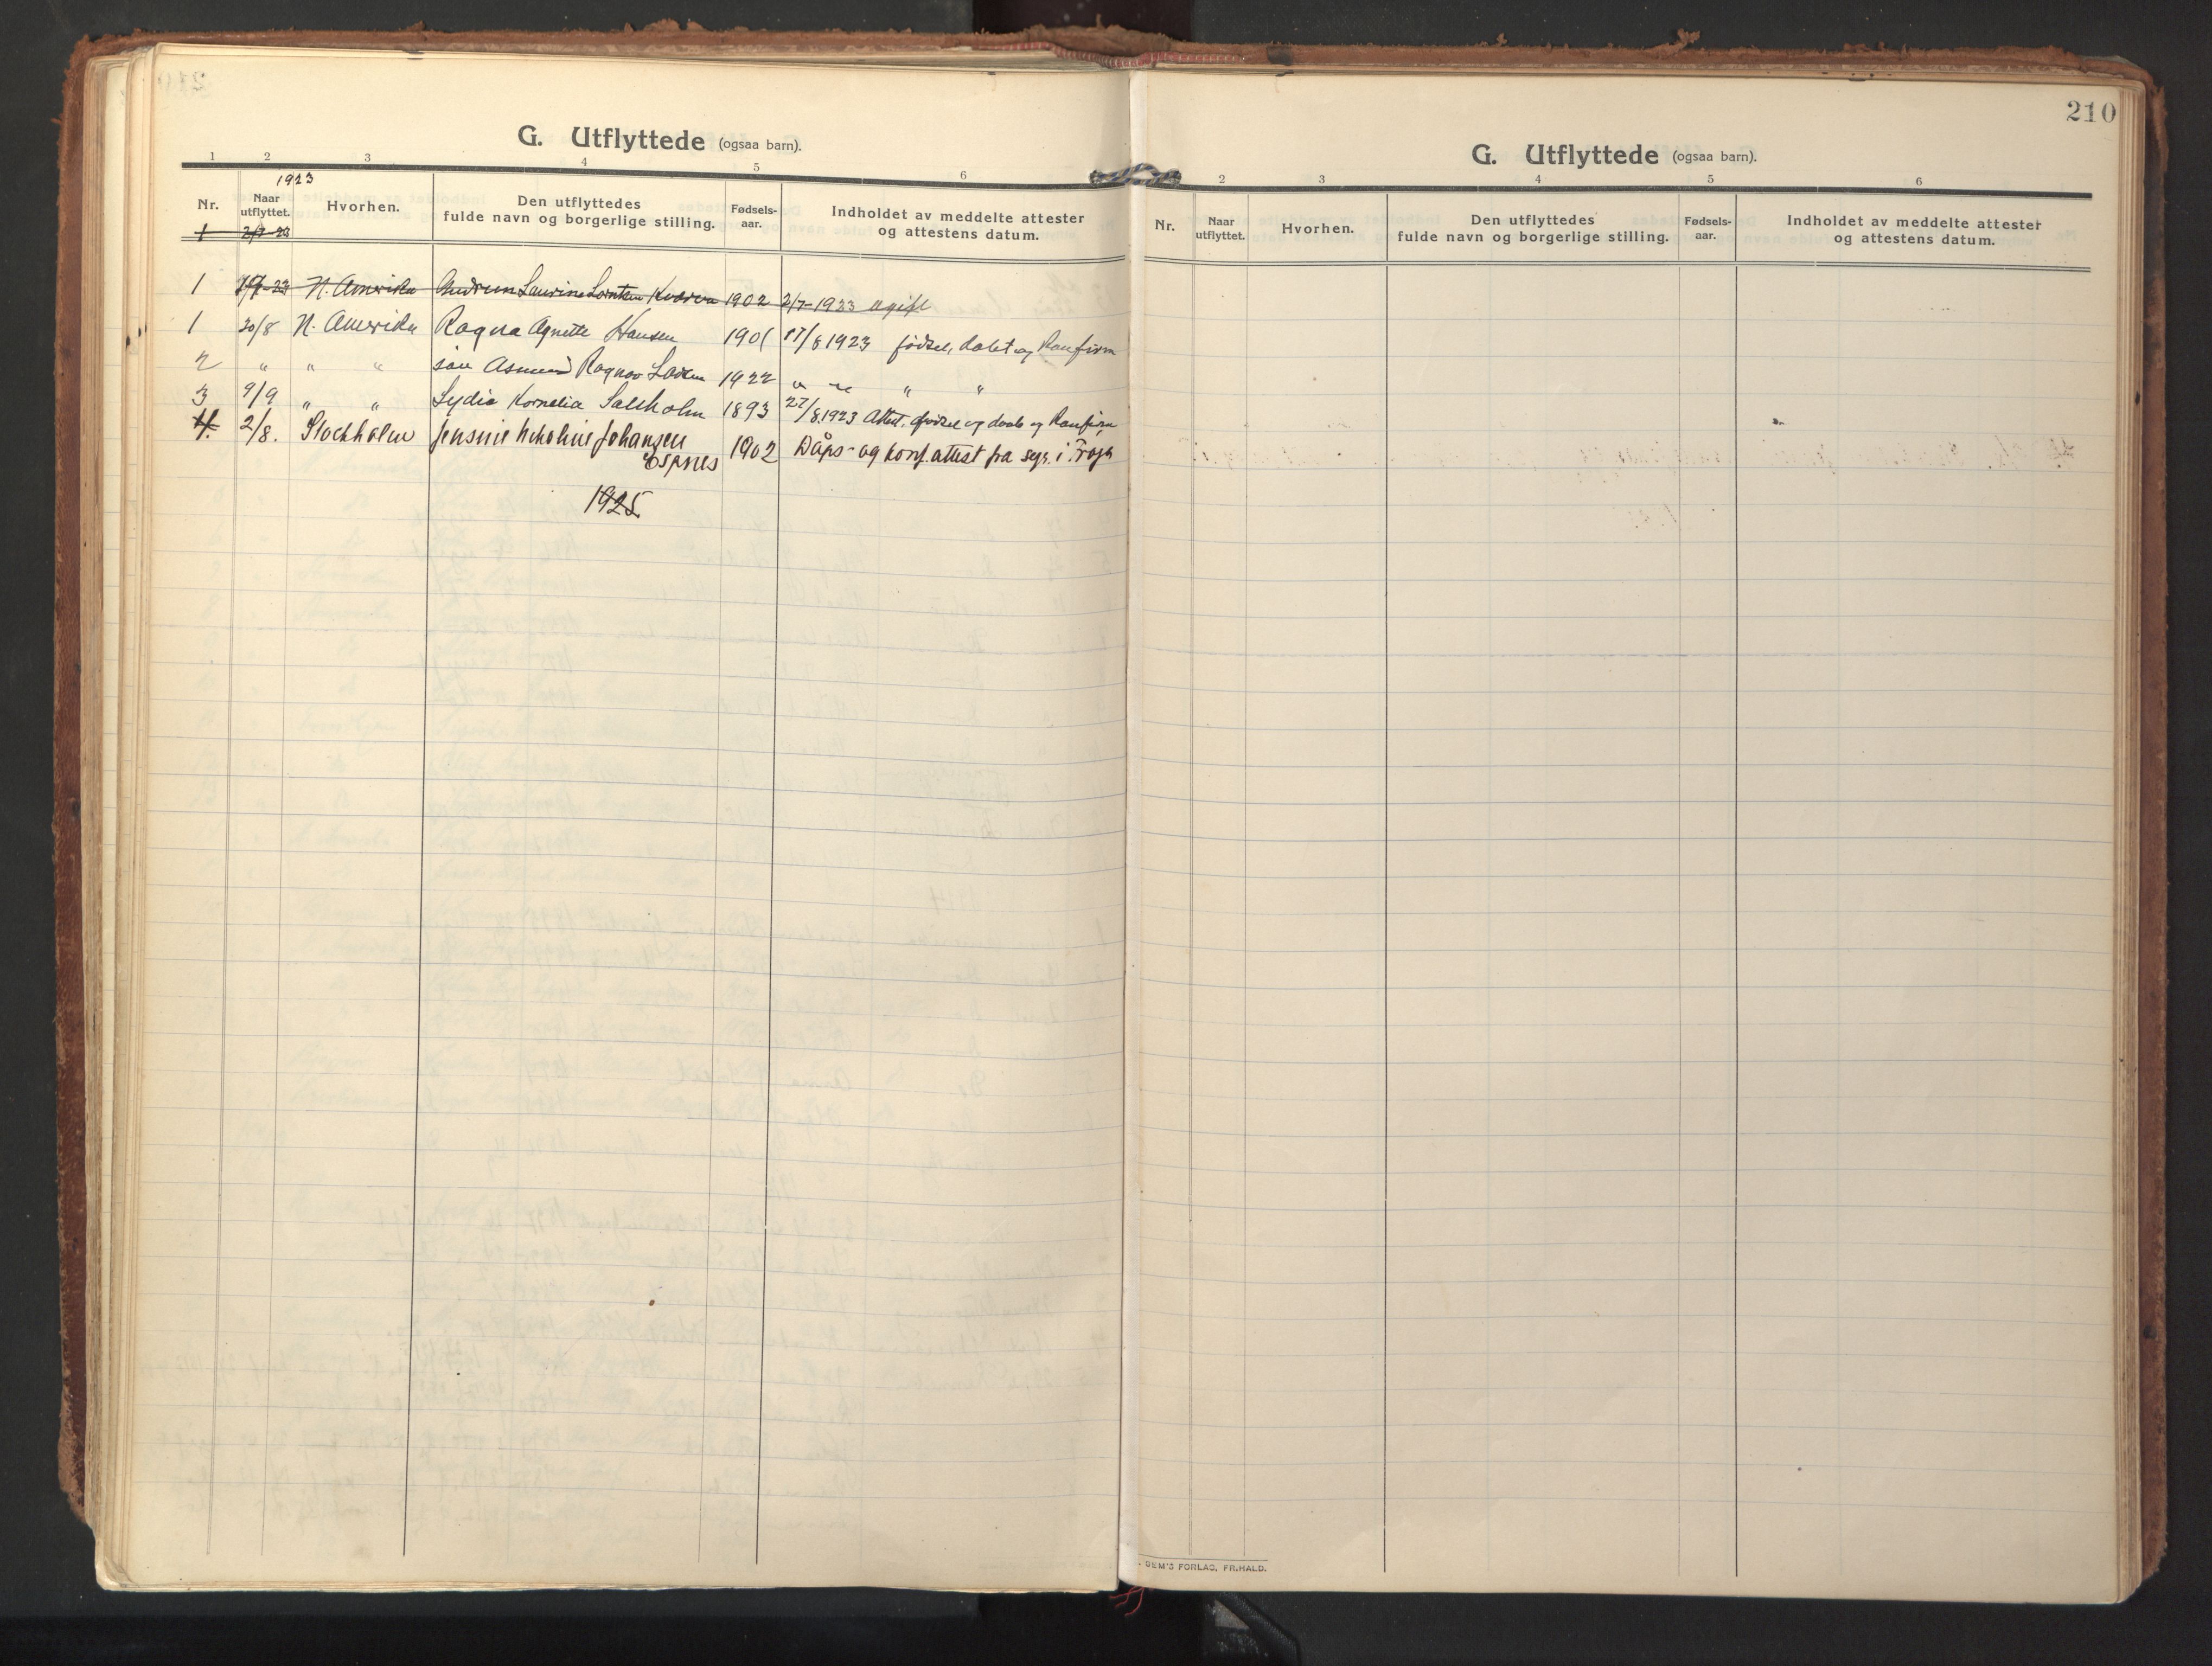 G. Utflyttede (ogsaa barn).
1 2 3 4 5 6
1923
Nr. Naar utflyttet. Hvorhen. Den utflyttedes fulde navn og borgerlige stilling. Fødsels-aar. Indholdet av meddelte attester og attestens datum.
1 2/7-23
1 2/7-23 N. Amerika Gudrun Laurine Lorntsen 1902 2/7-1923 ugift
1 20/8 N. Amerika Ragna Agnette Hansen 1901 17/8 1923 fødsel, daabst og Konfirm
2 " " " søn Asmund Ragnar 1922 " " " "
3 9/9 " " Lydia Kornelia 1893 27/8.1923 Attest. fødsel og daab og Konfirm
4. 2/8. Stockholm Johansen 1902 Dåps- og konf.attest fra sogr. i
Espnes
1925
210
G. Utflyttede (ogsaa barn).
2 3 4 5 6
Nr. Naar utflyttet. Hvorhen. Den utflyttedes fulde navn og borgerlige stilling. Fødsels-aar. Indholdet av meddelte attester og attestens datum.
DEM'S FORLAG, FR.HALD.